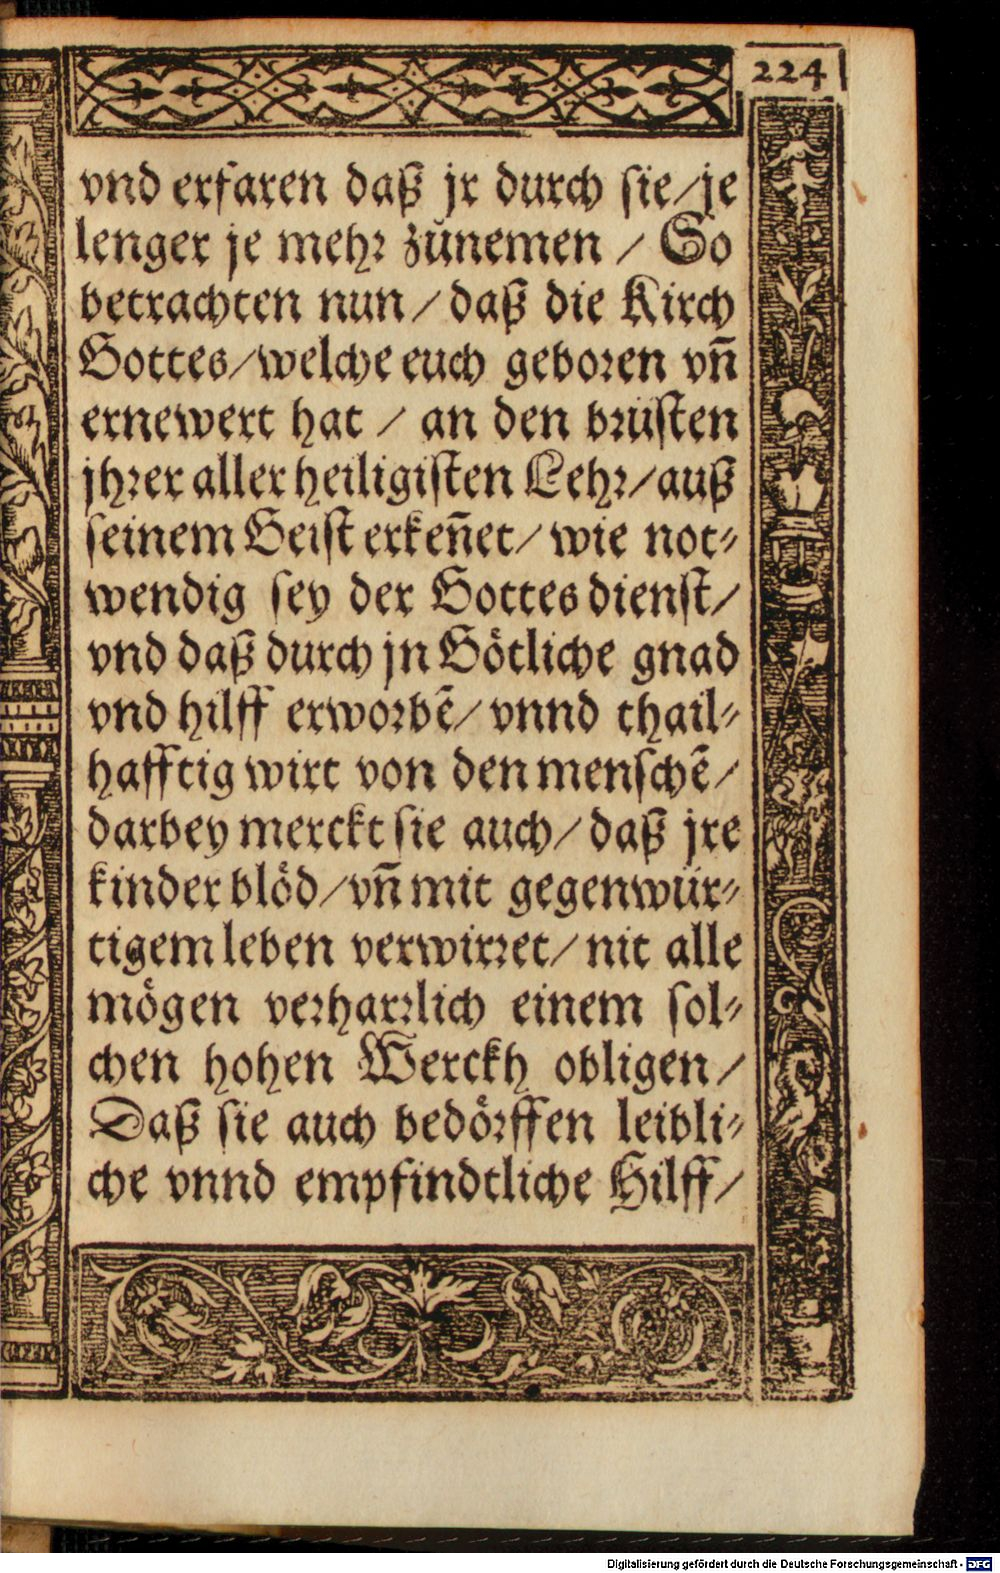 224
vnd erfaren daß jr durch sie/je
lenger je mehr zůnemen / So
betrachten nun / daß die Kirch
Gottes/welche euch geboren vñ
ernewert hat / an den brüsten
jhrer aller heiligisten Lehr/auß
seinem Geist erkeñet/ wie not⸗
wendig sey der Gottes dienst/
vnd daß durch jn Götliche gnad
vnd hilff erworbẽ/ vnnd thail⸗
hafftig wirt von den menschẽ/
darbey merckt sie auch/ daß jre
kinder blöd/vñ mit gegenwür⸗
tigem leben verwirret/ nit alle
mögen verharrlich einem sol⸗
chen hohen Werckh obligen/
Daß sie auch bedörffen leibli⸗
che vnnd empfindtliche Hilff/
Digitalisierung gefördert durch die Deutsche Forschungsgemeinschaft - DFG